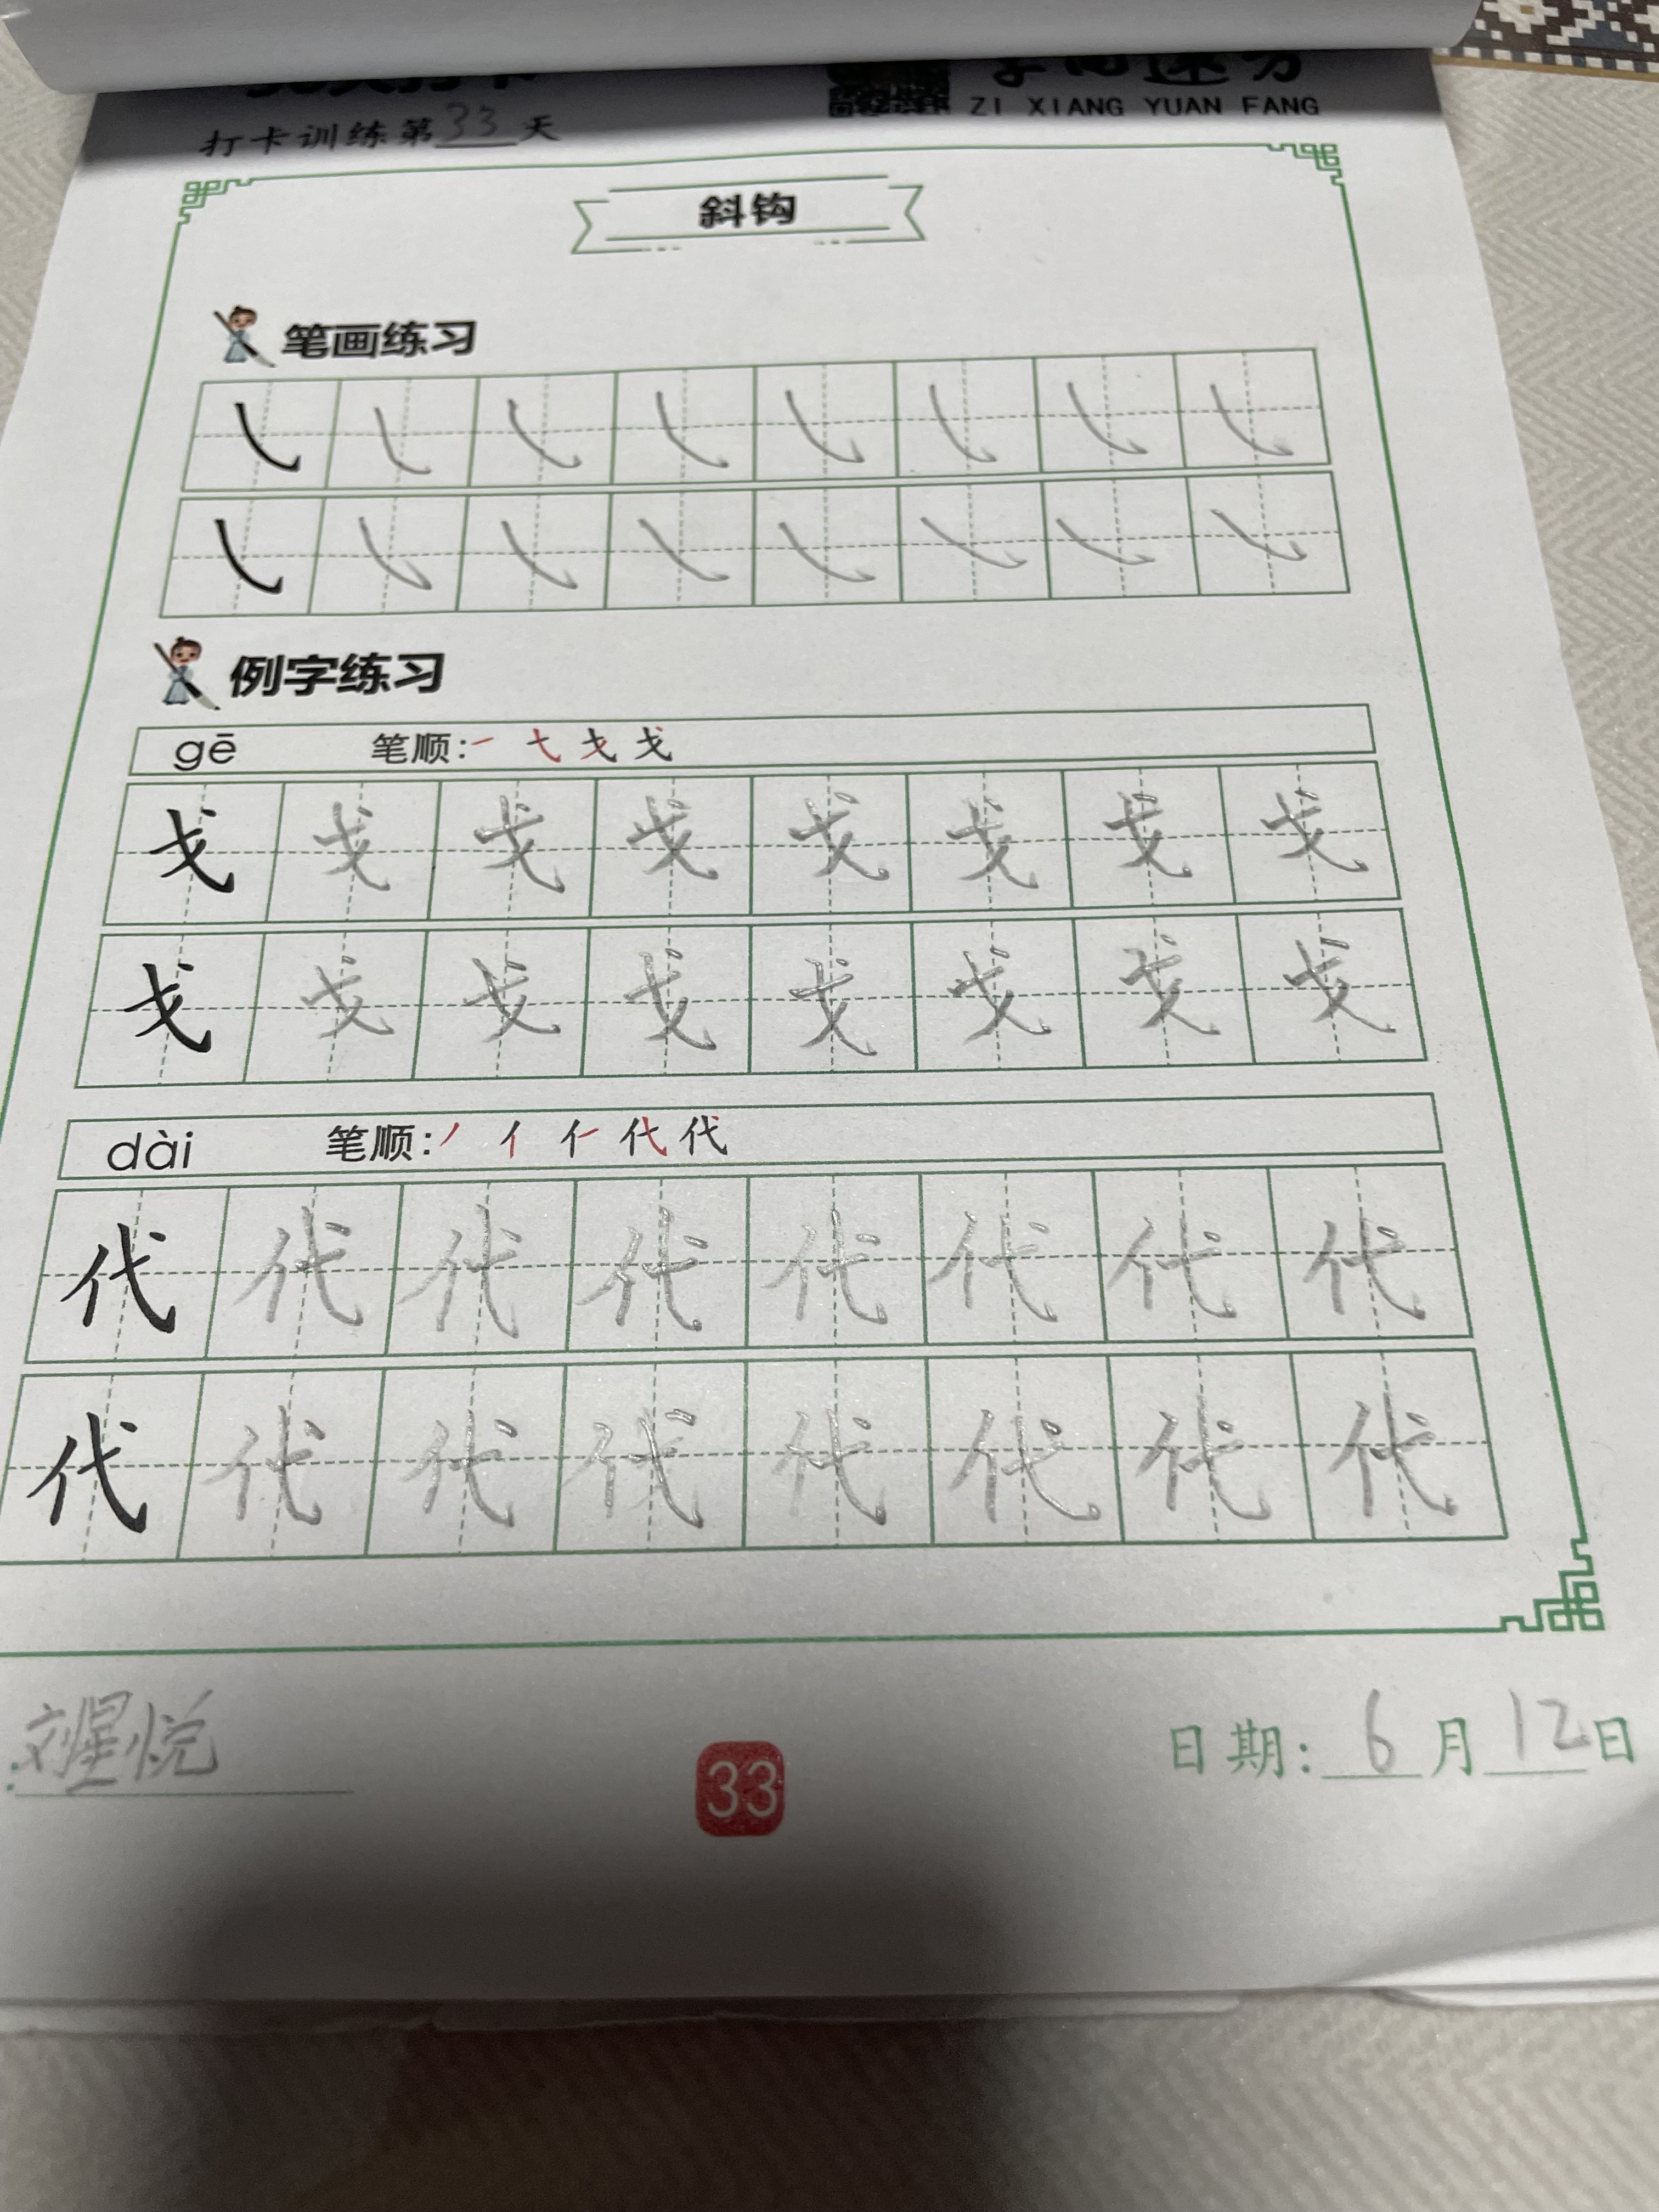 ZI XIANG YUAN FANG
打卡训练第33天
斜钩
笔画练习
例字练习
gē 笔顺: 一 戈 戈
戈 戈 戈 戈 戈 戈 戈 戈
戈 戈 戈 戈 戈 戈 戈 戈
dài 笔顺: 丿 亻 代 代
代 代 代 代 代 代 代 代
代 代 代 代 代 代 代 代
刘星悦
33
日期: 6月12日